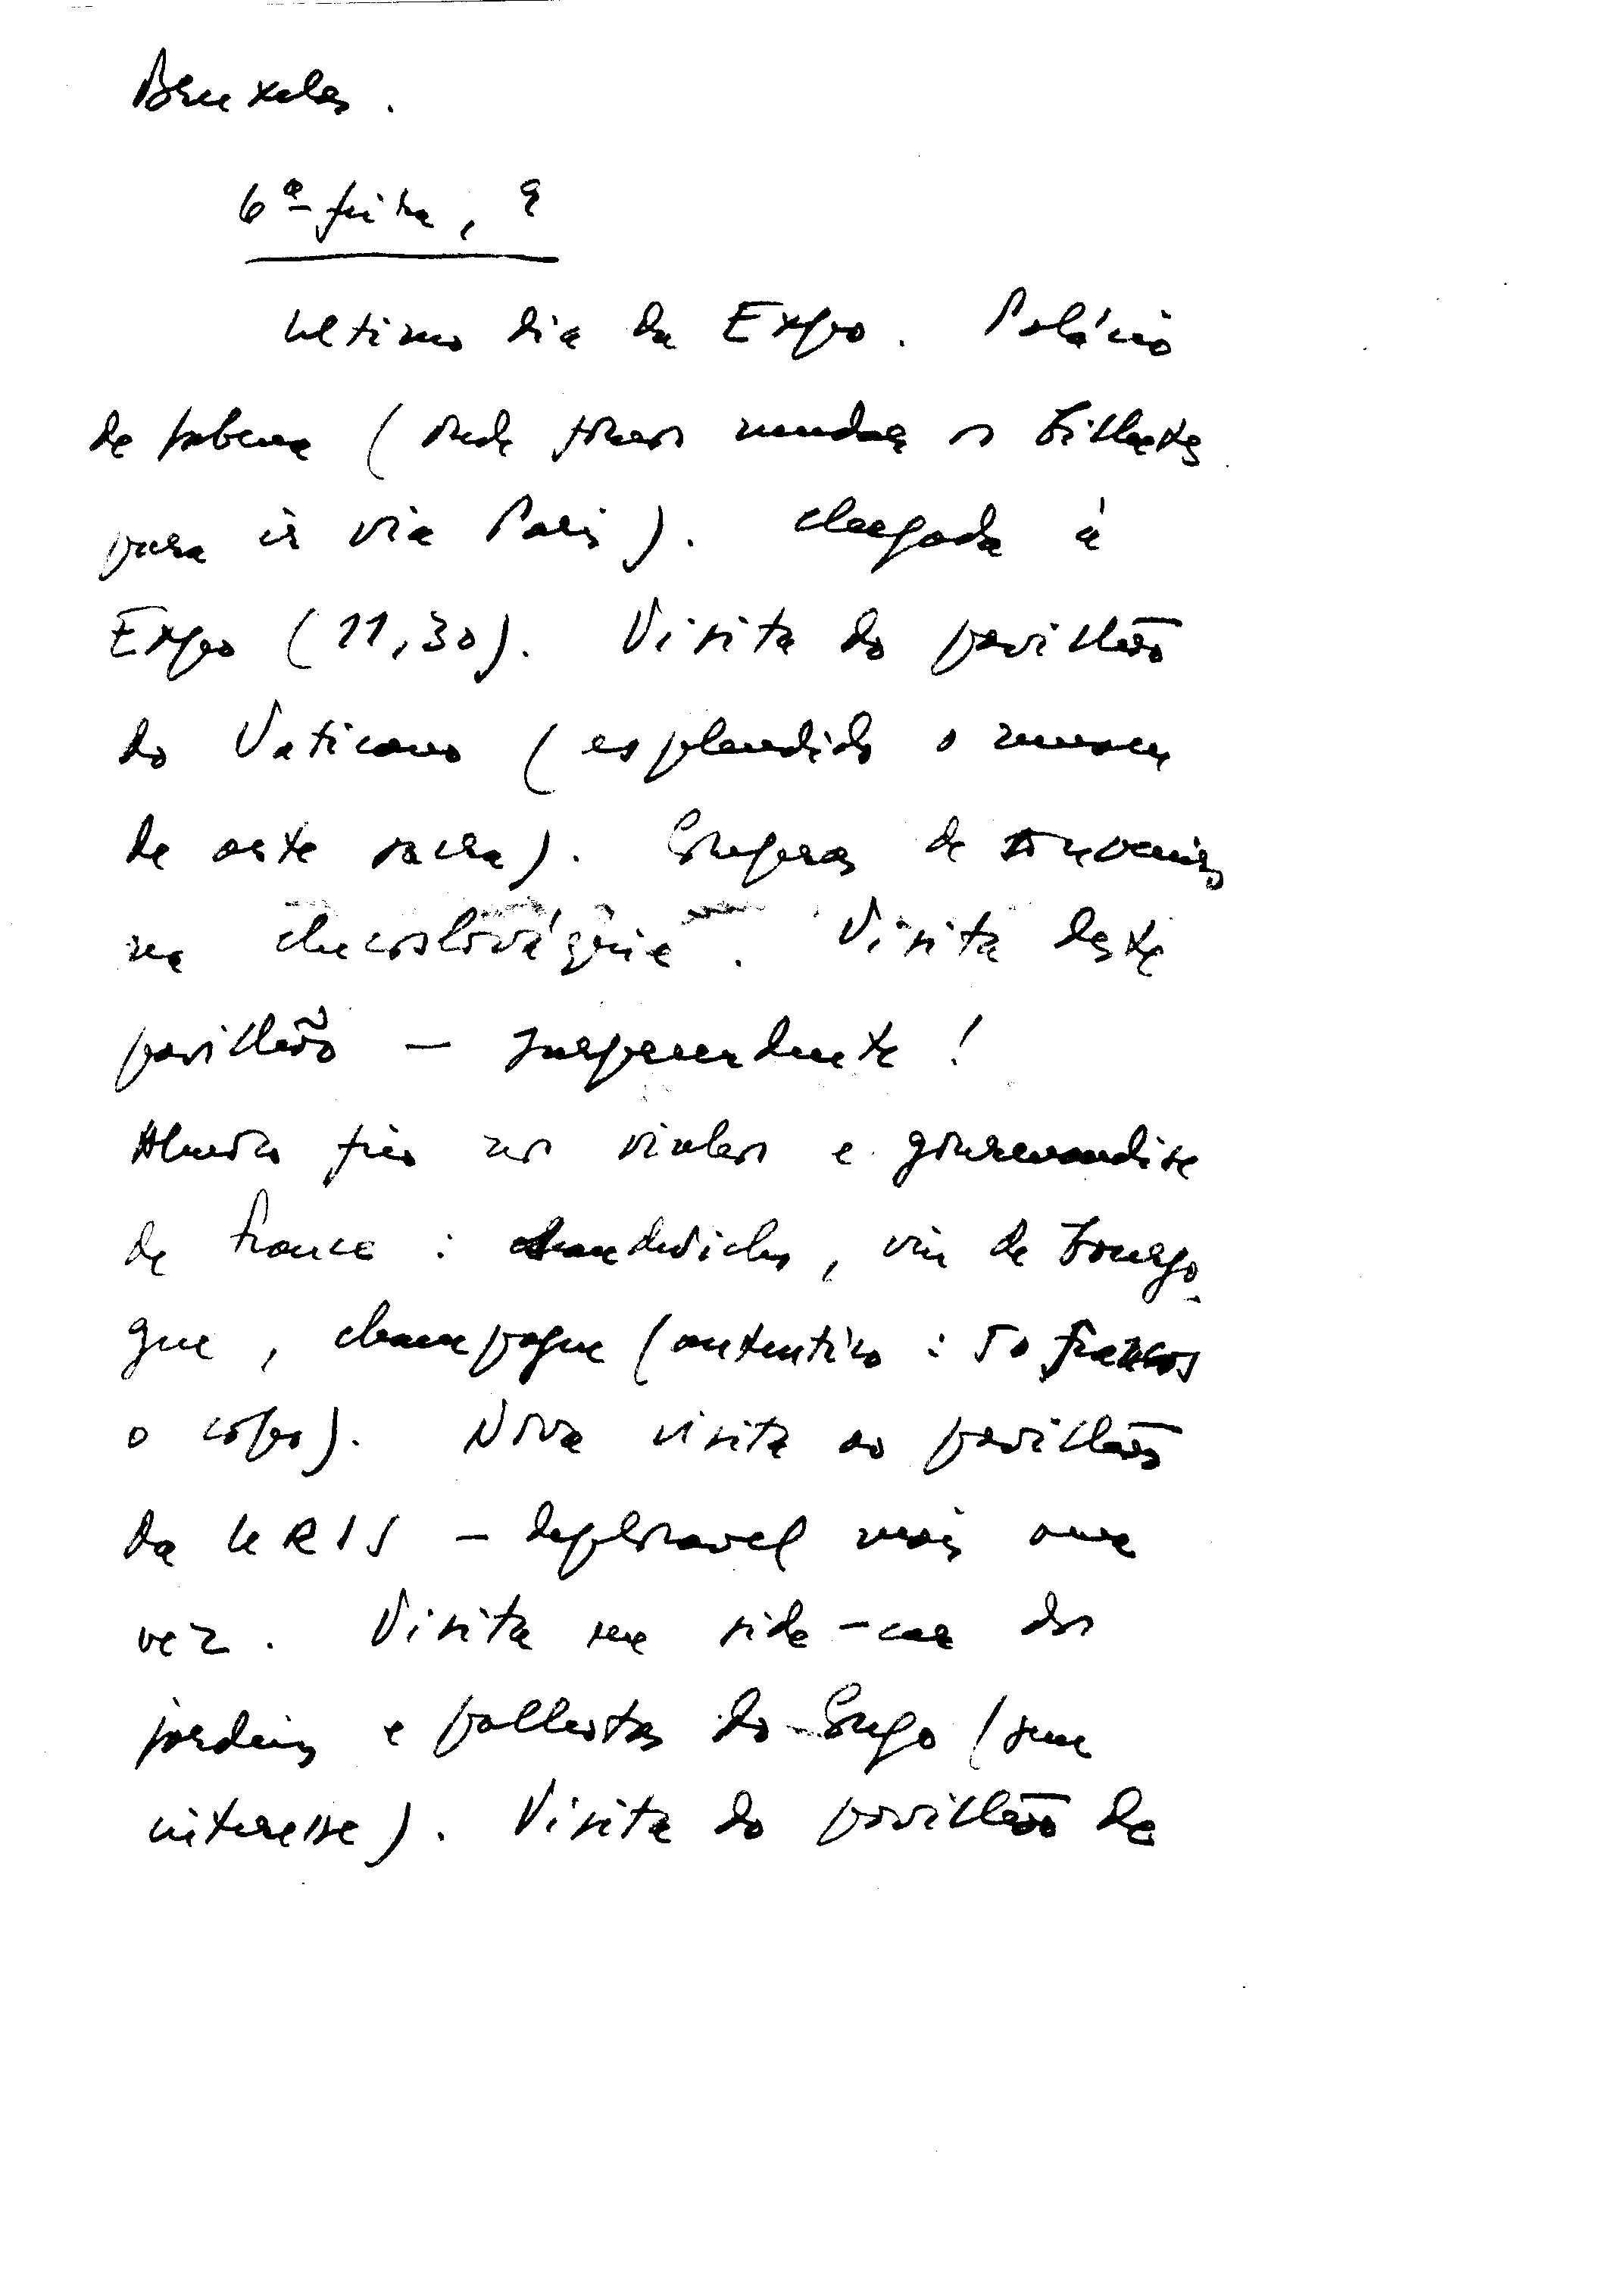 Bruxelas.
6ª feira, 9
Ultimo dia da Expo. Palácio
de Sabena (onde fomos mudar os bilhetes
para ir via Paris). Chegada à
Expo (11,30). Visita do pavilhão
do Vaticano (esplendido o museu
de arte sacra). Compras de souvenirs
na Checoslováquia. Visita deste
pavilhão — surpreendente!
Almoço frio nos vinhos e gourmandise
de France: sandwiches, vin de Bourgo-
gne, champagne (autentico: 50 francos
o copo). Nova visita ao pavilhão
da URSS — deploravel mais uma
vez. Visita em side-car dos
jardins e palhotas do Congo (sem
interesse). Visita do pavilhão de